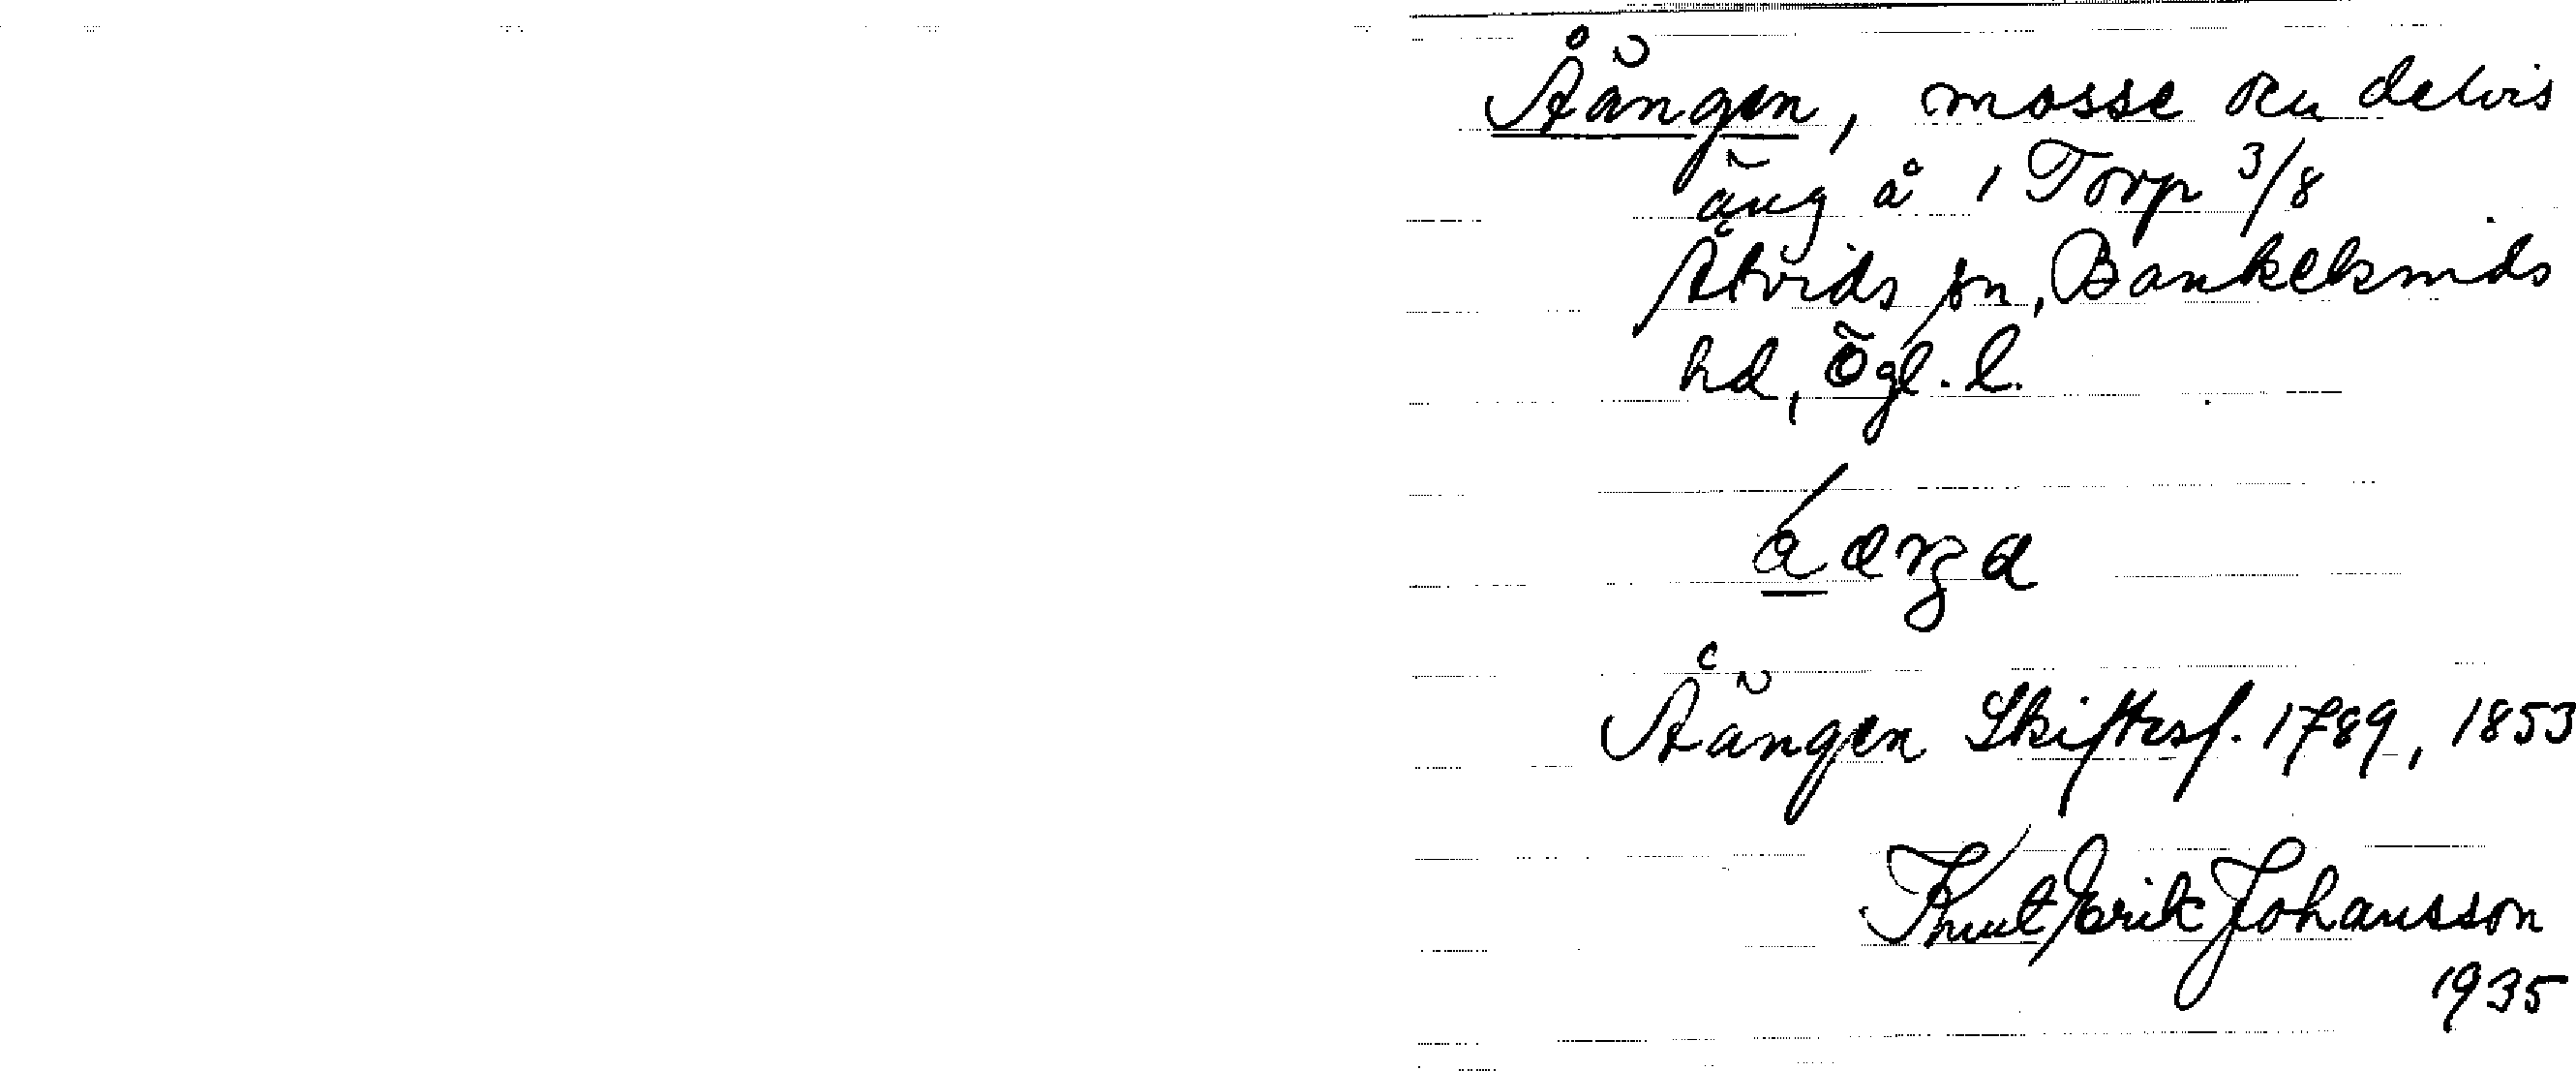 Åängen, mosse o. delvis
äng å 1 Torp 3/8
Åtvids sn, Bankekinds
hd, Ögl. l.
Åängen Skiftesf. 1789, 1853
Knut Erik Johansson
1935